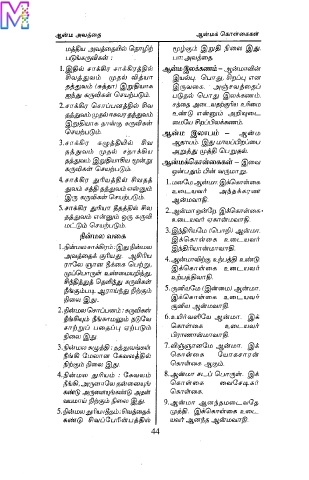 ஆன்ம அவத்தை
ஆன்மக் கொள்கைகள்
மத்திய அவத்தையில் தொழிற்
படுங்கருவிகள் :
1. இதில் சாக்கிர சாக்கிரத்தில்
சிவத்துவம் முதல் வித்யா
தத்துவம் (சுத்தா) இறுதியாக
ஐந்து கருவிகள் செயற்படும்.
2. சாக்கிர சொப்பனத்தில் சிவ
தத்துவம் முதல் ஈசுவர தத்துவம்
இறுதியாக நான்கு கருவிகள்
செயற்படும்.
3. சாக்கிர சுழுத்தியில் சிவ
தத்துவம் முதல் சதாக்கிய
தத்துவம் இறுதியாகிய மூன்று
கருவிகள் செயற்படும்.
4. சாக்கிர துரியத்தில் சிவதத்
துவம் சத்தி தத்துவம் என்னும்
இரு கருவிகள் செயற்படும்.
5. சாக்கிர துரியா தீதத்தில் சிவ
தத்துவம் என்னும் ஒரு கருவி
மட்டும் செயற்படும்.
நின்மல வகை
1. நின்மல சாக்கிரம் : இது நின்மல
அவத்தைக் குரியது. ஆசிரிய
ராலே ஞான நீக்கை பெற்று,
முப்பொருள் உண்மையறிந்து,
சிந்தித்துத் தெளிந்து கருவிகள்
நீங்கும்படி ஆராய்ந்து நிற்கும்
நிலை இது.
2. நின்மல சொப்பனம் : கருவிகள்
நீங்கியும் நீங்காமலும் நடுவே
சாற்றும் பதைப்பு ஏற்படும்
நிலை இது
3. நின்மல சுழுத்தி : தத்துவங்கள்
நீங்கி மேலான கேவலத்தில்
நிற்கும் நிலை இது.
4. நின்மல துரியம் : கேவலம்
நீங்கி, அருளாலே தன்னையுங்
கண்டு அருளையுங்கண்டு அதன்
வயமாய் நிற்கும் நிலை இது.
5. நின்மல துரியாதீதம் : சிவத்தைக்
கண்டு சிவப்பேரின்பத்தில்
மூழ்கும் இறுதி நிலை இது.
பா: அவத்தை.
ஆன்ம இலக்கணம் – ஆன்மாவின்
இயல்பு. பொது, சிறப்பு என
இருவகை. அஞ்சவத்தைப்
படுதல் பொது இலக்கணம்.
சத்தை அடைவதற்குரிய உரிமை
உண்டு என்னும் அறிவுடை
மையே சிறப்பிலக்கணம்.
ஆன்ம இலாபம் – ஆன்ம
ஆதாயம். இது மாயப்பிறப்பை
அறுத்து முத்தி பெறுதல்.
ஆன்மக்கொள்கைகள் – இவை
ஒன்பதும் பின் வருமாறு.
1. மனமே ஆன்மா. இக்கொள்கை
உடையவர் அந்தக்கரண
ஆன்மவாதி.
2. ஆன்மா ஒன்றே. இக்கொள்கை
உடையவர் ஏகான்மவாதி.
3. இந்திரியமே (பொறி) ஆன்மா.
இக்கொள்கை உடையவர்
இந்திரியான்மாவாதி.
4. ஆன்மாவிற்கு உற்பத்தி உண்டு
இக்கொள்கை உடையவர்
உற்பத்திவாதி.
5. சூனியமே (இன்மை) ஆன்மா.
இக்கொள்கை உடையவர்
சூனிய ஆன்மவாதி.
6. உயிர்வளியே ஆன்மா. இக்
கொள்கை உடையவர்
பிராணான்மாவாதி.
7. விஞ்ஞானமே ஆன்மா. இக்
கொள்கை யோகசாரன்
கொள்கை ஆகும்.
8. ஆன்மா சடப் பொருள். இக்
கொள்கை வைசேடிகர்
கொள்கை.
9. ஆன்மா ஆனந்தமடைவதே
முத்தி. இக்கொள்கை உடை
யவர் ஆனந்த ஆன்மவாதி.
44